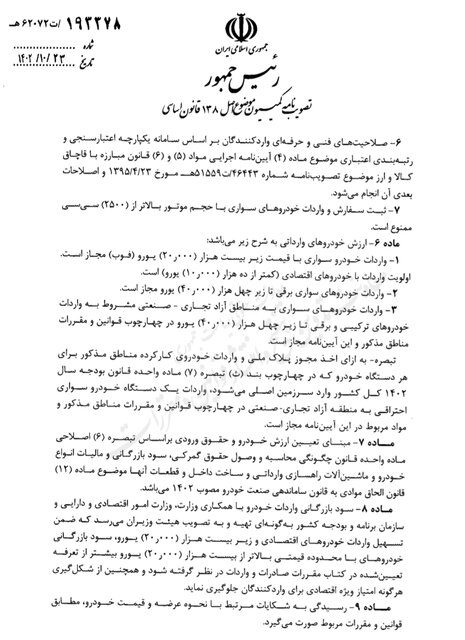 ۱۹۳۲۷۸/ت۶۲۰۷۲هـ
شماره
۱۴۰۲/۱۰/۲۳
تاریخ
جمهوری اسلامی ایران
رئیس جمهور
تصویب نامه کمیسیون موضوع اصل ۱۳۸ قانون اساسی
۶- صلاحیت‌های فنی و حرفه‌ای واردکنندگان بر اساس سامانه یکپارچه اعتبارسنجی و
رتبه‌بندی اعتباری موضوع ماده (۴) آیین‌نامه اجرایی مواد (۵) و (۶) قانون مبارزه با قاچاق
کالا و ارز موضوع تصویب‌نامه شماره ۴۶۴۴۳/ت۵۱۵۵۹هـ مورخ ۱۳۹۵/۴/۲۳ و اصلاحات
بعدی آن انجام می‌شود.
۷- ثبت سفارش و واردات خودروهای سواری با حجم موتور بالاتر از (۲۵۰۰) سی‌سی
ممنوع است.
ماده ۶- ارزش خودروهای وارداتی به شرح زیر می‌باشد:
۱- واردات خودرو سواری با قیمت زیر بیست هزار (۲۰٫۰۰۰) یورو (فوب) مجاز است.
اولویت واردات با خودروهای اقتصادی (کمتر از ده هزار (۱۰٫۰۰۰) یورو) است.
۲- واردات خودروهای سواری برقی تا زیر چهل هزار (۴۰٫۰۰۰) یورو مجاز است.
۳- واردات خودروهای سواری به مناطق آزاد تجاری - صنعتی مشروط به واردات
خودروهای ترکیبی و برقی تا زیر چهل هزار (۴۰٫۰۰۰) یورو در چهارچوب قوانین و مقررات
مناطق مذکور و این آیین‌نامه مجاز است.
تبصره- به ازای اخذ مجوز پلاک ملی و واردات خودروی کارکرده مناطق مذکور برای
هر دستگاه خودرو که در چهارچوب بند (ث) تبصره (۷) ماده واحده قانون بودجه سال
۱۴۰۲ کل کشور وارد سرزمین اصلی می‌شود، واردات یک دستگاه خودرو سواری
احتراقی به منطقه آزاد تجاری-صنعتی در چهارچوب قوانین و مقررات مناطق مذکور و
مواد مربوط در این آیین‌نامه مجاز است.
ماده ۷- مبنای تعیین ارزش خودرو و حقوق ورودی براساس تبصره (۶) اصلاحی
ماده واحده قانون چگونگی محاسبه و وصول حقوق گمرکی، سود بازرگانی و مالیات انواع
خودرو و ماشین‌آلات راهسازی وارداتی و ساخت داخل و قطعات آنها موضوع ماده (۱۲)
قانون الحاق موادی به قانون ساماندهی صنعت خودرو مصوب ۱۴۰۲ می‌باشد.
ماده ۸- سود بازرگانی واردات خودرو با همکاری وزارت، وزارت امور اقتصادی و دارایی و
سازمان برنامه و بودجه کشور به‌گونه‌ای تهیه و به تصویب هیئت وزیران می‌رسد که ضمن
تسهیل واردات خودروهای اقتصادی و زیر بیست هزار (۲۰٫۰۰۰) یورو، سود بازرگانی
خودروهای با محدوده قیمتی بالاتر از بیست هزار (۲۰٫۰۰۰) یورو بیشتر از تعرفه
تعیین‌شده در کتاب مقررات صادرات و واردات در نظر گرفته شود و همچنین از شکل‌گیری
هرگونه امتیاز ویژه اقتصادی برای واردکنندگان جلوگیری نماید.
ماده ۹- رسیدگی به شکایات مرتبط با نحوه عرضه و قیمت خودرو، مطابق
قوانین و مقررات مربوط صورت می‌گیرد.